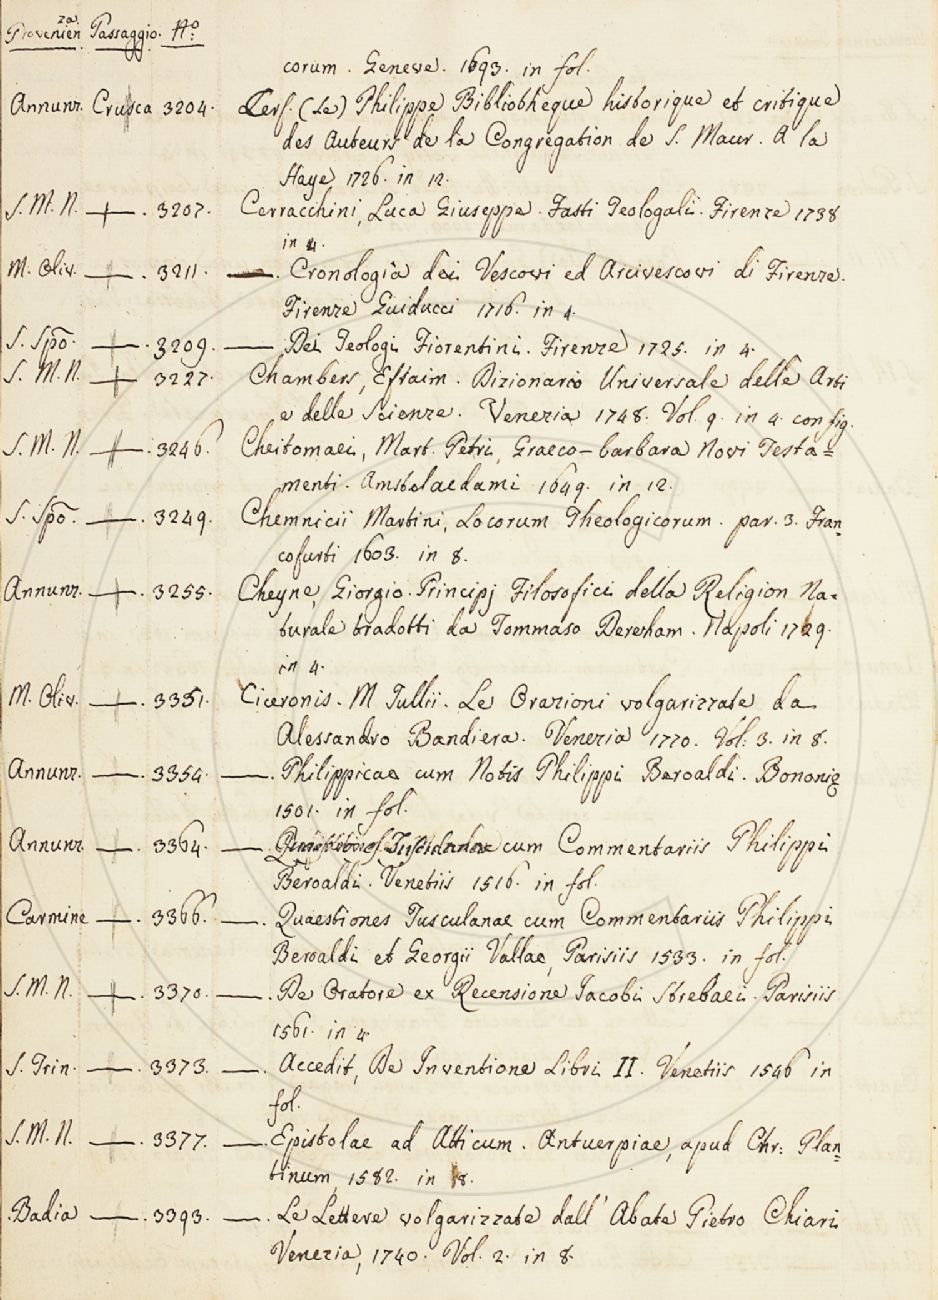 Provenienza. Passaggio. No:
corum. Geneve. 1693. in fol.
Annunz. Crusca 3204. Cerf. (Le) Philippe Bibliotheque historique et critique
des Auteurs de la Congregation de S. Maur. A la
Haye 1726. in 12.
S. M. N. —— . 3207. Cerracchini, Luca Giuseppe. Fasti Teologali. Firenze 1738
in 4.
M. Oliv. —— . 3211. —— . Cronologia dei Vescovi ed Arcivescovi di Firenze.
Firenze Guiducci 1716. in 4.
S. Spo. —— . 3209. —— Dei Teologi Fiorentini. Firenze 1725. in 4.
S. M. N. —— . 3227. Chambers, Efraim. Dizionario Universale delle Arti
e delle Scienze. Venezia 1748. Vol. 9. in 4. con fig.
S. M. N. —— . 3246. Cheitomaei, Mart. Petri, Graeco-barbara Novi Testa=
menti. Amstelaedami 1649. in 12.
S. Spo. —— . 3249. Chemnicii Martini, Locorum Theologicorum. par. 3. Fran=
cofurti 1603. in 8.
Annunz. —— . 3255. Cheyne, Giorgio. Principj Filosofici della Religion Na=
turale tradotti da Tommaso Dereham. Napoli 1729.
in 4.
M. Oliv. —— . 3351. Ciceronis. M Tullii. Le Orazioni volgarizzate da
Alessandro Bandiera. Venezia 1770. Vol: 3. in 8.
Annunz. —— . 3354. —— . Philippicae cum Notis Philippi Beroaldi. Bononię
1501. in fol.
Annunz —— . 3364. —— cum Commentariis Philippi
Beroaldi. Venetiis 1516. in fol.
Carmine —— . 3366. —— . Quaestiones Tusculanae cum Commentariis Philippi
Beroaldi et Georgii Vallae, Parisiis 1533. in fol.
S. M. N. —— . 3370. —— . De Oratore ex Recensione Jacobi Strebaei. Parisiis
1561. in 4.
S. Trin. —— . 3373. —— . Accedit, De Inventione Libri II. Venetiis 1546 in
fol.
S. M. N. —— . 3377. —— . Epistolae ad Atticum. Antuerpiae, apud Chr: Plan=
tinum, 1582. in 8.
Badia —— . 3393. —— . Le Lettere volgarizzate dall' Abate Pietro Chiari
Venezia, 1740. Vol. 2. in 8.